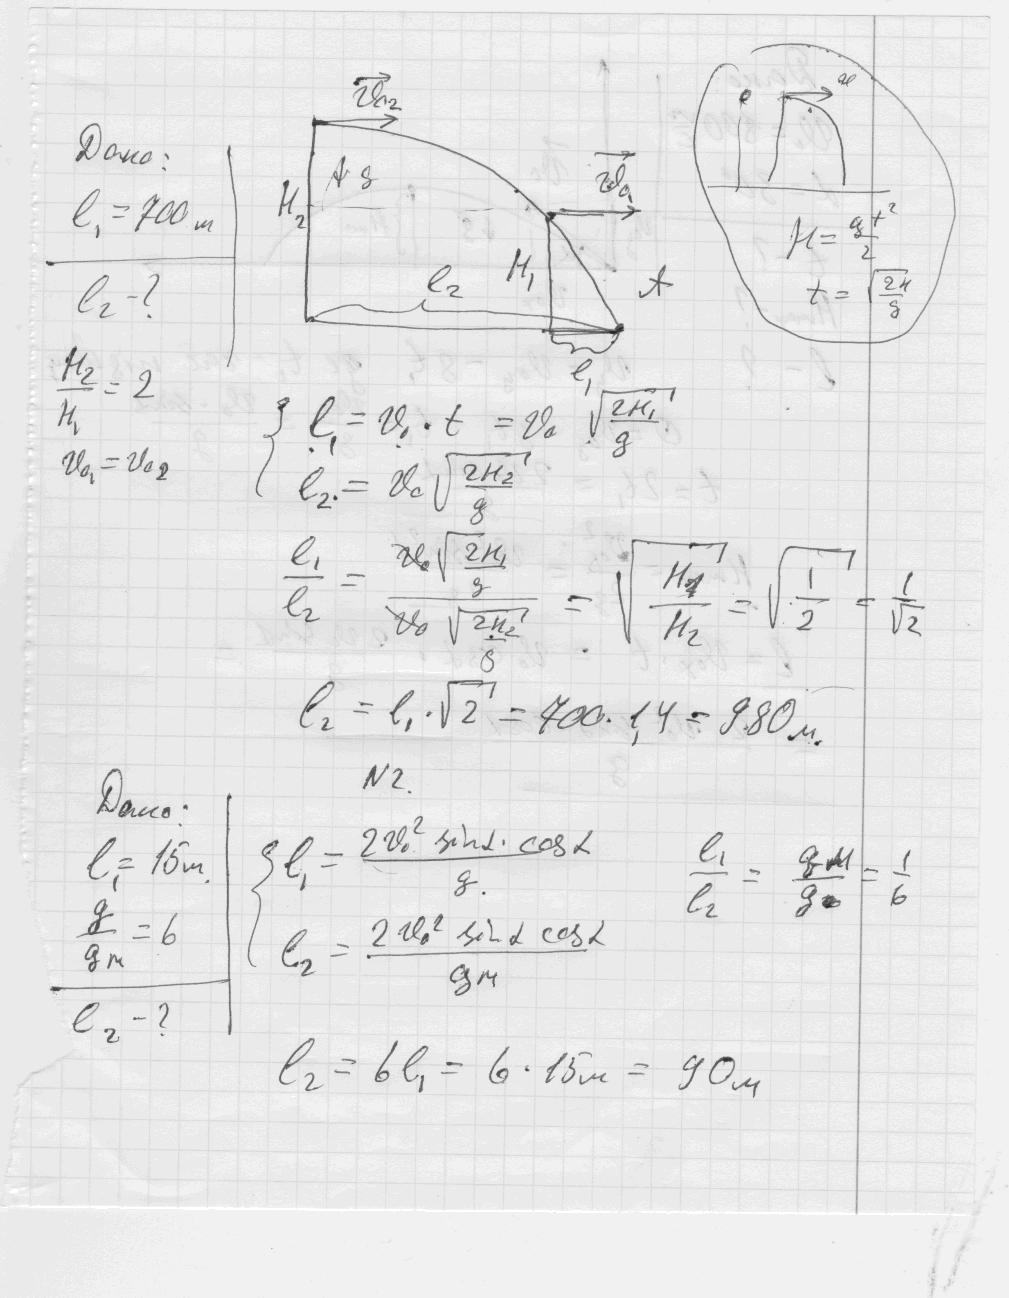 v₀₂
Дано:
l₁ = 700 м
l₂ - ?
H₂
H₁ = 2
v₀₁ = v₀₂
H₂
v₀₁
H₁
l₂
A
l₁
x
H = gt²/2
t = √(2H/g)
l₁ = v₀ · t = v₀ √(2H₁/g)
l₂ = v₀ √(2H₂/g)
l₁/l₂ = v₀√(2H₁/g) / v₀√(2H₂/g) = √(H₁/H₂) = √(1/2) = 1/√2
l₂ = l₁ · √2 = 700 · 1,4 = 980 м.
N2.
Дано:
l₁ = 15 м.
g/gм = 6
l₂ - ?
l₁ = 2v₀² sinα · cosα / g.
l₂ = 2v₀² sinα cosα / gм
l₁/l₂ = gм/g = 1/6
l₂ = 6l₁ = 6 · 15 м = 90 м